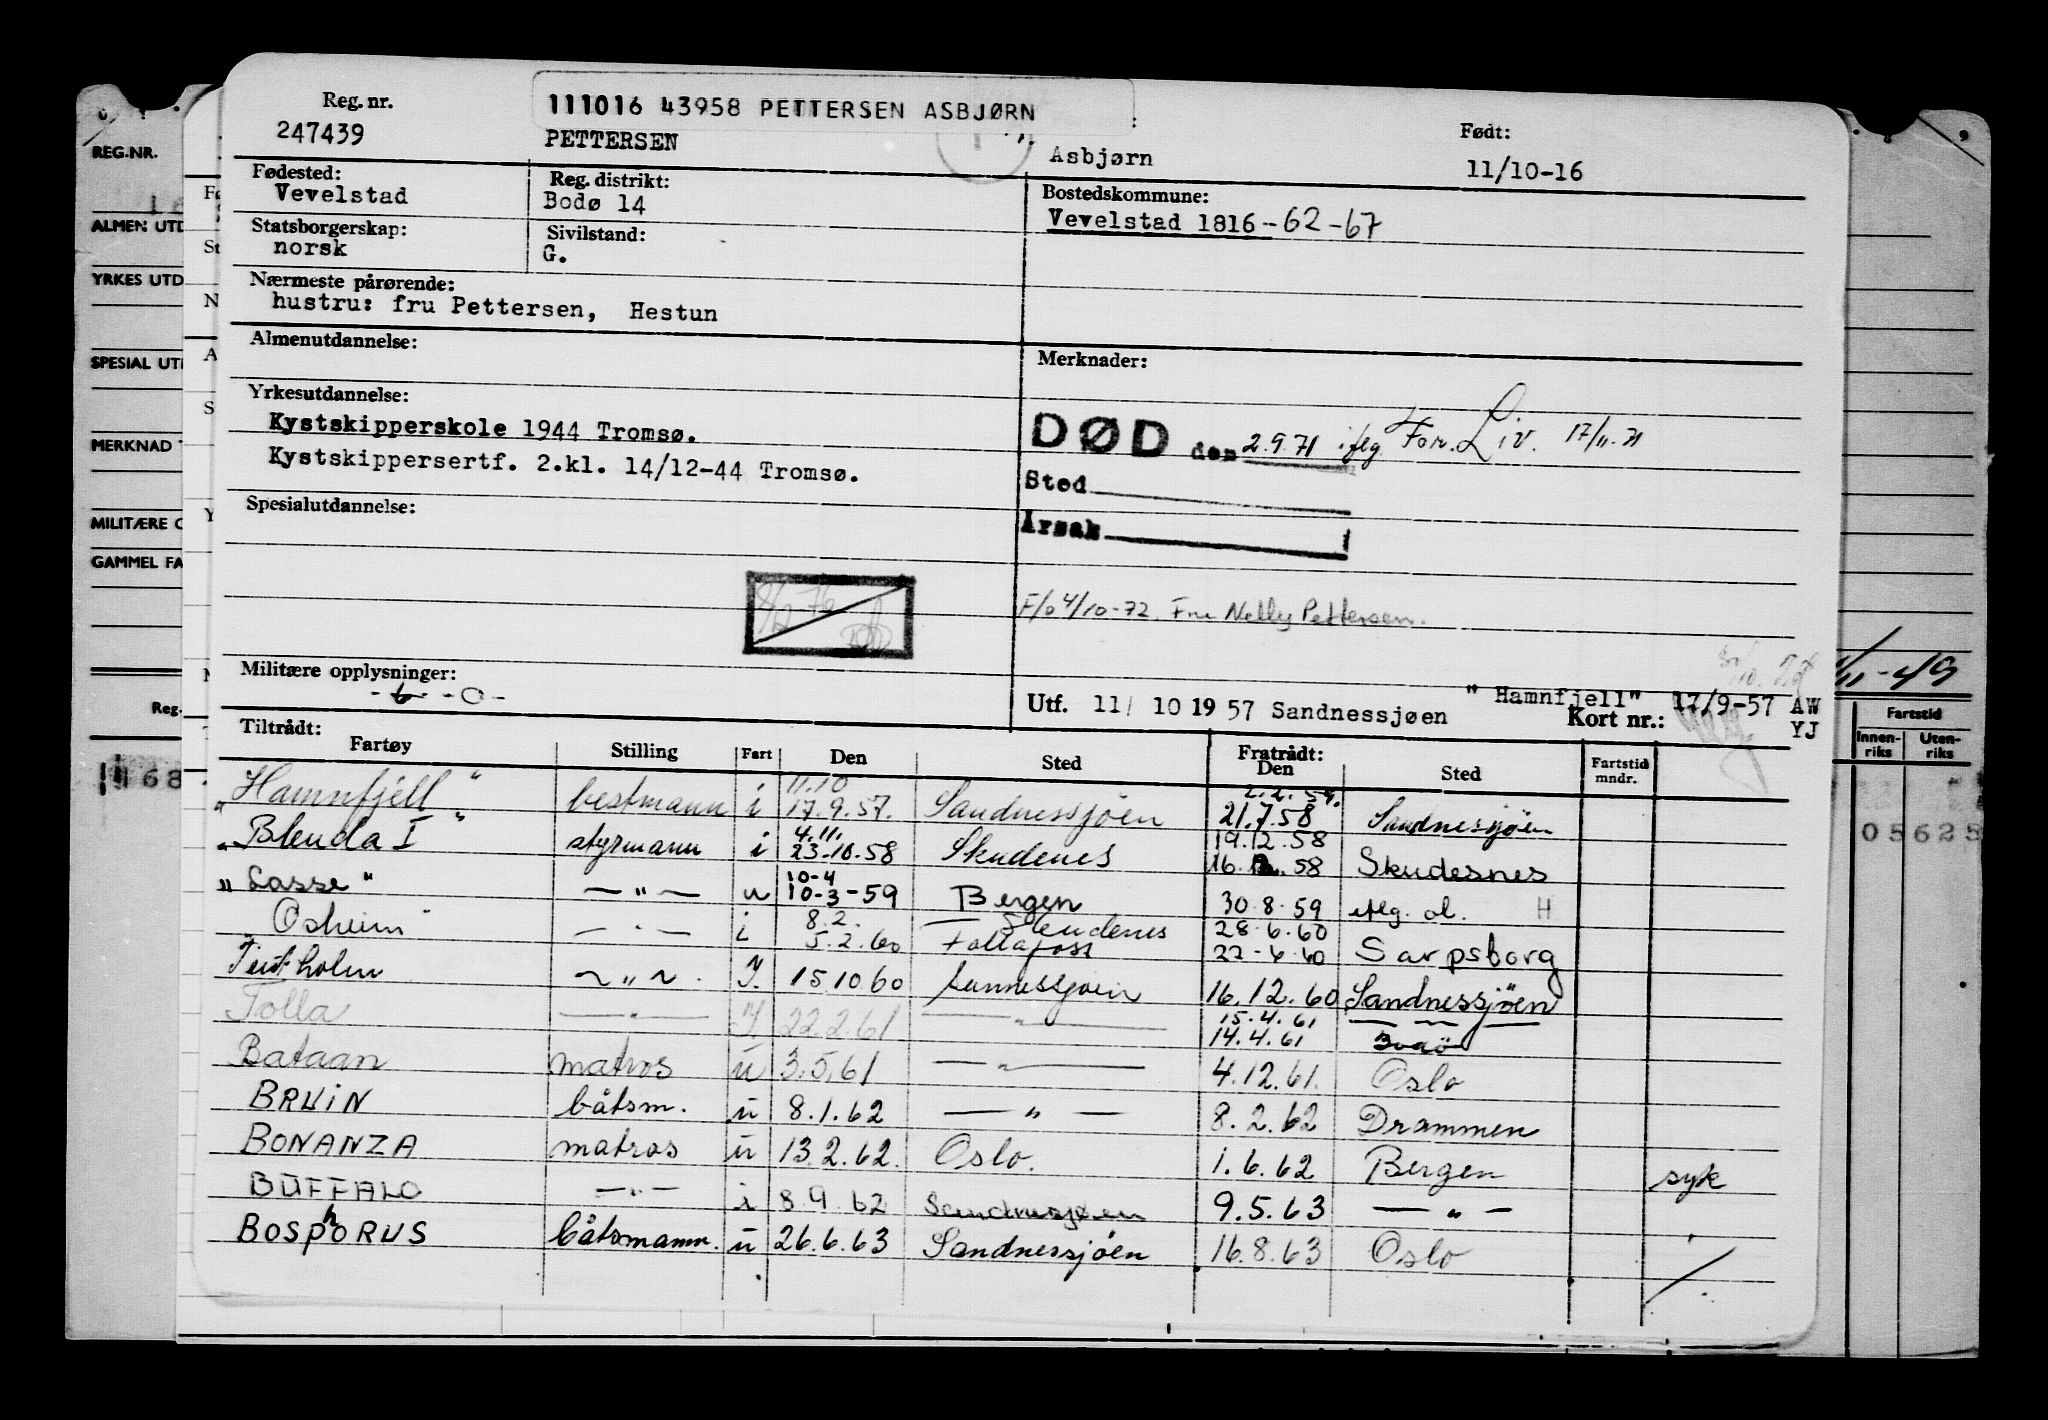 Reg. nr. 111016 43958 PETTERSEN ASBJØRN Født:
247439 PETTERSEN Asbjørn 11/10-16
Fødested: Reg. distrikt: Bostedskommune:
Vevelstad Bodø 14 Vevelstad 1816-62-67
Statsborgerskap: Sivilstand:
norsk G.
Nærmeste pårørende:
hustru: fru Pettersen, Hestun
Almenutdannelse: Merknader:
Yrkesutdannelse:
Kystskipperskole 1944 Tromsø. DØD den 2.9.71 iflg. For. Liv. 17/11-71
Kystskippersertf. 2.kl. 14/12-44 Tromsø. Sted
Spesialutdannelse: Årsak
F/o 4/10-72. Fru Nelly Pettersen.
Militære opplysninger:
- 6 - 0 -
Utf. 11/ 10 1957 Sandnessjøen "Hamnfjell" 17/9-57 AW
Kort nr.: YJ
Tiltrådt: Fratrådt:
Fartøy Stilling Fart Den Sted Den Sted Fartstid mndr.
11.10 2.2.59.
"Hamnfjell" bestmann i 17.9.57. Sandnessjöen 21.7.58 Sandnessjöen
4.11. 19.12.58
"Blenda I" styrmann i 23-10-58 Skudenes 16. 58 Skudesnes
10-4
"Lasse" — " — u 10-3-59 Bergen 30.8.59 iflg. ol. H
8.2. Skudenes 28.6.60
Osheim — " — i 5.2.60 Follafoss 22-6-60 Sarpsborg
holm ~ " ~ I. 15.10.60 16.12.60 Sandnessjöen
15.4.61
Folla — " — I 22.2.61 — " — 14.4.61 Bodö
Bataan matros u 3.5.61 — " — 4.12.61. Oslo
BRUIN båtsm. u 8.1.62 — " — 8.2.62 Drammen
BONANZA matros u 13.2.62. Oslo. 1.6.62 Bergen syk
BUFFALO — " — i 8.9.62 Sandnessjøen 9.5.63 — " —
BOSPhORUS båtsmann. u 26.6.63 Sandnessjöen 16.8.63 Oslo
REG.NR.
ALMEN UTD
YRKES UTD
SPESIAL UTD
MERKNAD
MILITÆRE O
GAMMEL FA
Reg.
168
11-49
Fartstid
Innen-riks Uten-riks
05625